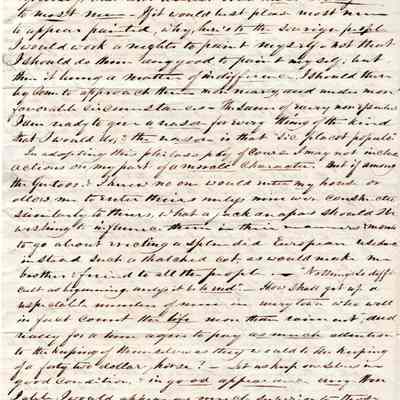 to most men — If it would best please most men
to appear painted, why, here's to the sovereign people
I would work a nights to paint myself — not that
I should do them any good to paint myself; but
then it being a matter of indifference, I should there
by come to approach them on and under more
favorable circumstances. The same of
I am ready to give a reason for every thing of the kind
that I would do, & the reason is that "sic placet populo"
In adopting this philosophy of course I may not include
actions on my part of a moral character. But if among
the no one would enter my house or
allow me to enter theirs unless mine were constructed
similarly to theirs, what a jackanapes should I be
wishing to influence them in their manners & morals
to go about erecting a splendid European
instead such a thatched cot, as would make me
brother & friend to all the people — "Nothing is diffi
cult at beginning and it" — How shall get up a
respectable number of men in every town who will
in fact count the life more than raiment, and
really for a term agree to pay as much attention
to the keeping of themselves as they would to the keeping
of a forty two dollar horse? — Let us keep ourselves in
good condition, & in good appearance any How
I would appear as much superior to those